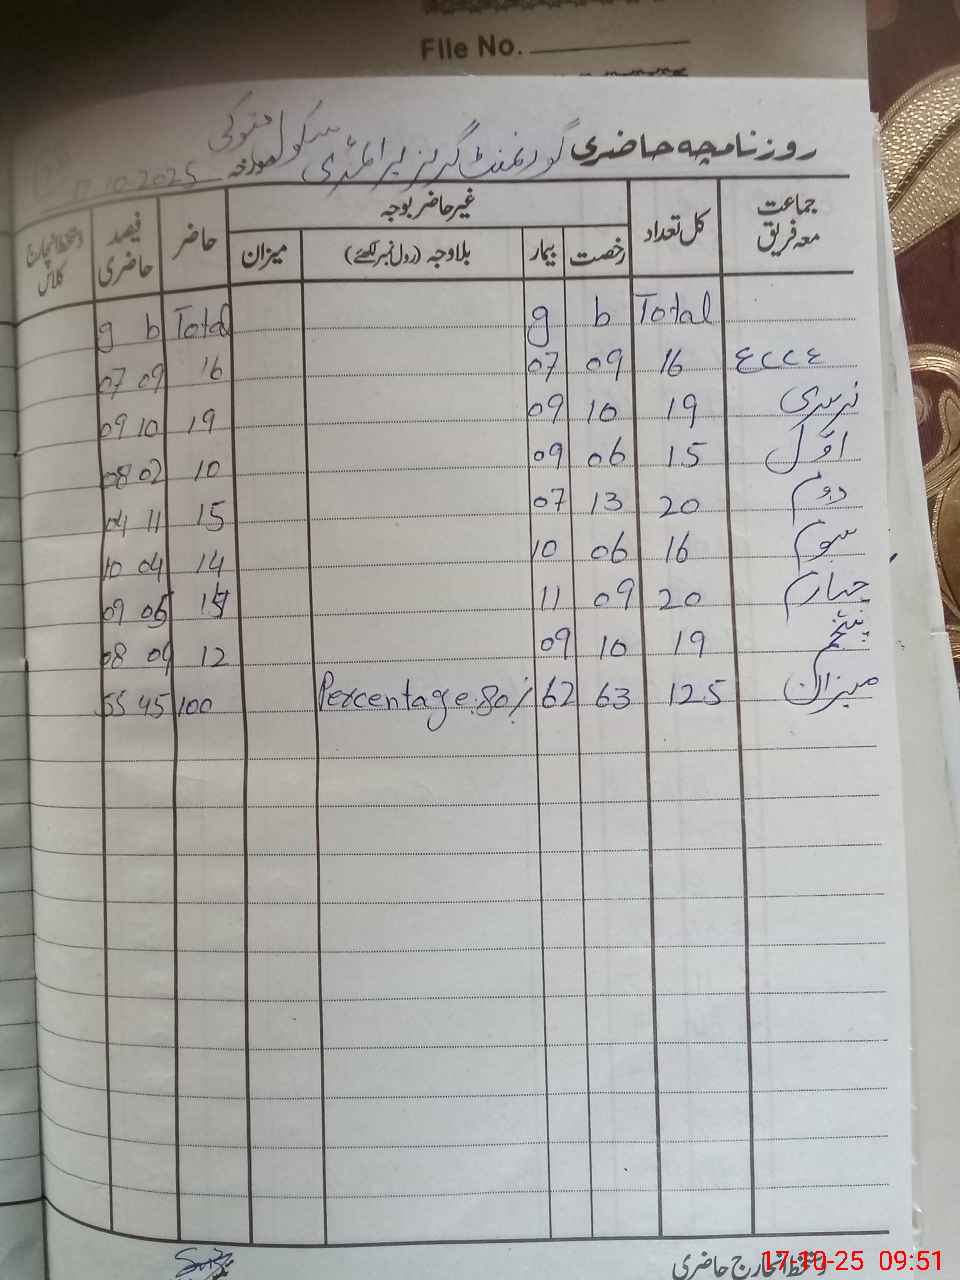 File No.
روزنامچہ حاضری گورنمنٹ گرلز پرائمری سکول متوکی مورخہ 17.10.2025
جماعت معہ فریق کل تعداد غیر حاضر بوجہ حاضر فیصد حاضری دستخط انچارج کلاس
رخصت بیمار بلاوجہ (رول نمبر لکھئے) میزان
Total b g Total b g
ECCE 16 09 07 16 09 07
نرسری 19 10 09 19 10 09
اوّل 15 06 09 10 02 08
دوم 20 13 07 15 11 04
سوم 16 06 10 14 04 10
چہارم 20 09 11 09
پنجم 19 10 09 12 09 08
میزان 125 63 62 Percentage.80% 100 45 55
دستخط انچارج حاضری
17-10-25 09:51